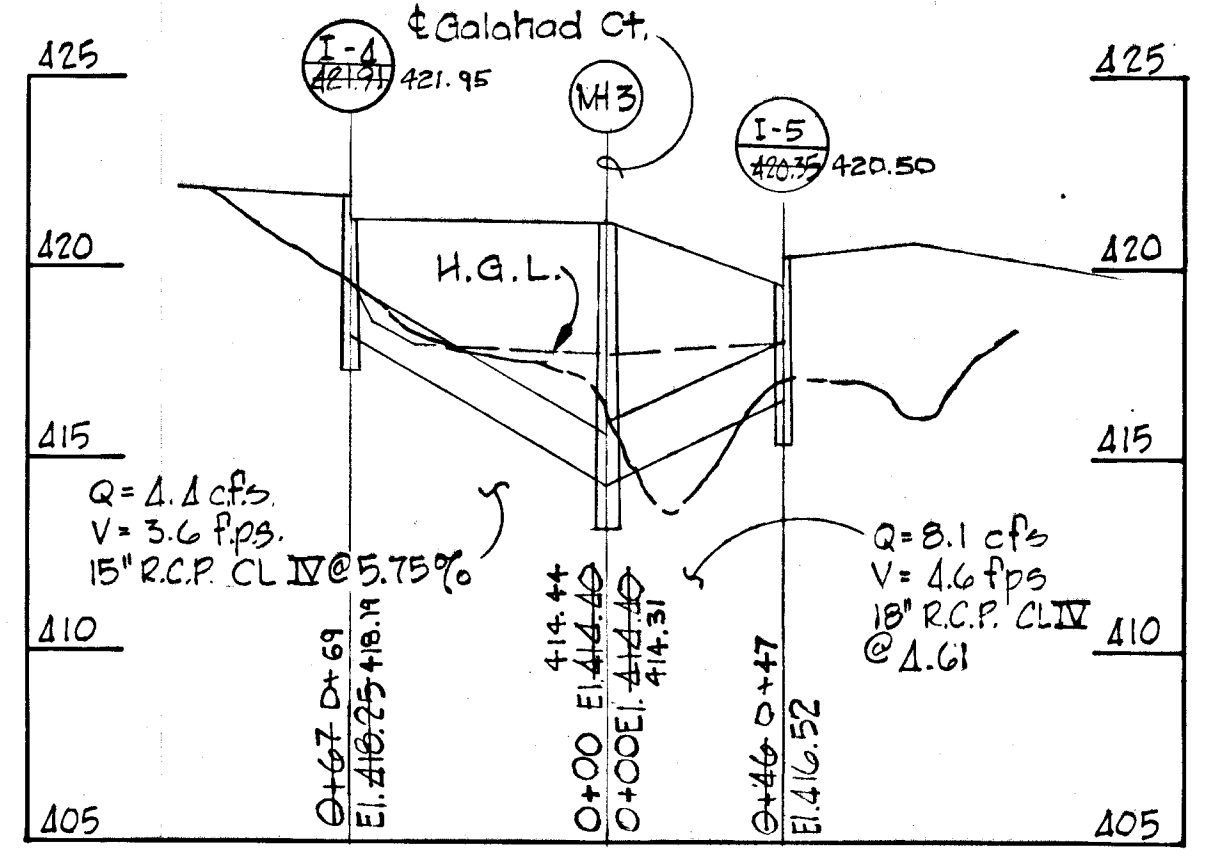 ℄ Galahad Ct.
425
I-4
421.91 421.95
MH 3
425
I-5
420.35 420.50
420
420
H.G.L.
415
415
Q = 4.4 c.f.s.
V = 3.6 f.p.s.
15" R.C.P. CL IV @ 5.75%
Q = 8.1 cfs
V = 4.6 fps
18" R.C.P. CL IV
@ 4.61
410
410
0+67 0+69
El. 418.25 418.19
414.44
0+00 El. 414.40
0+00 El. 414.40
414.31
0+46 0+47
El. 416.52
405
405